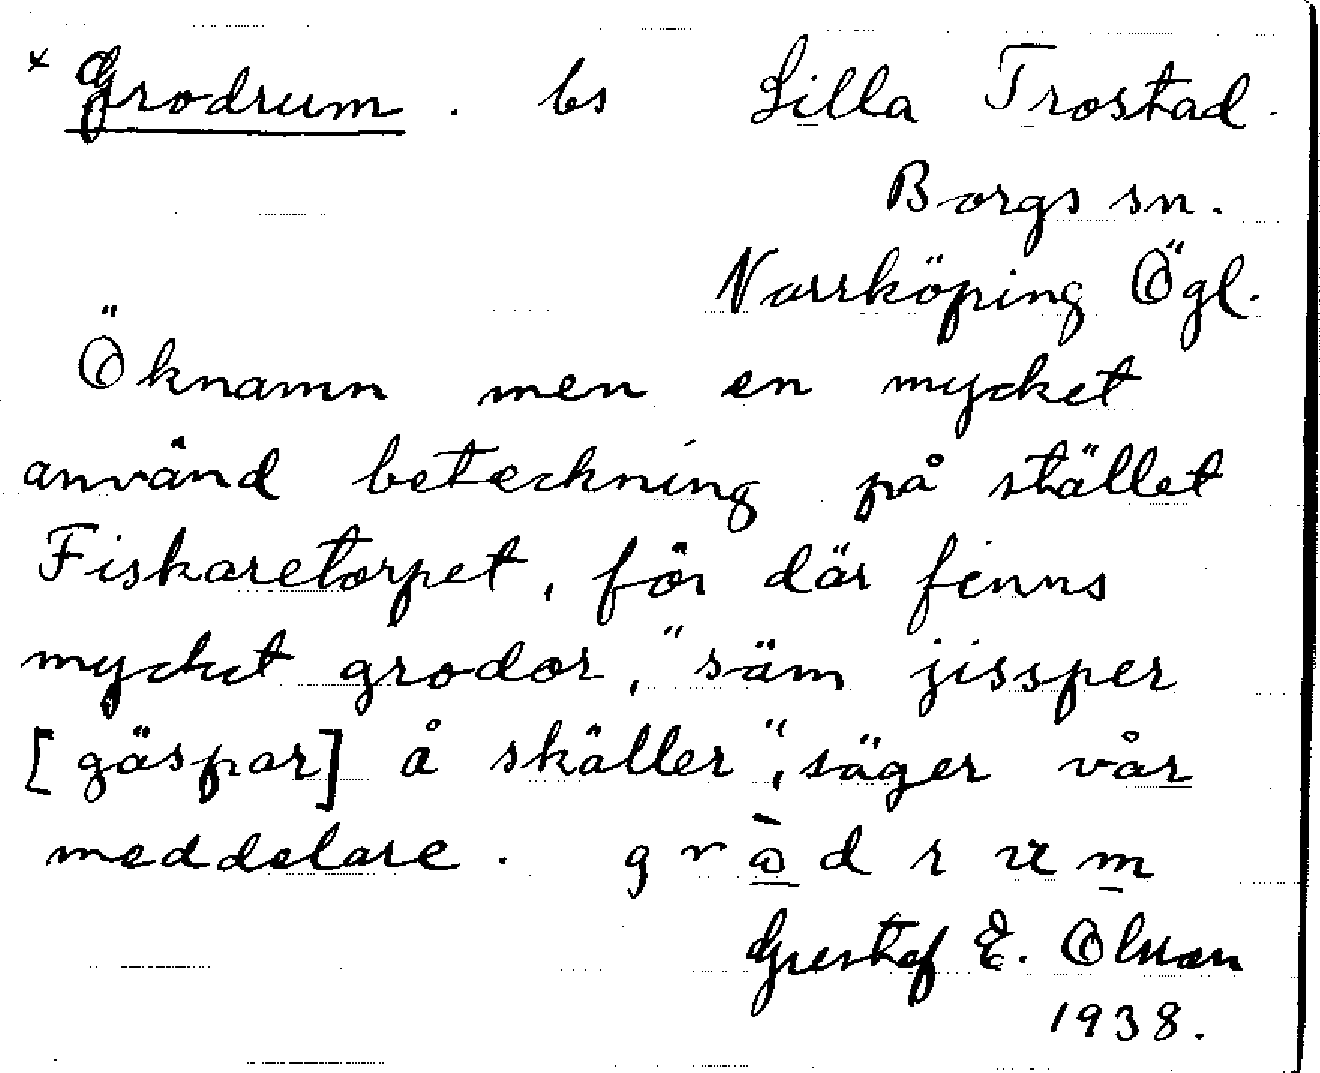 × Grodrum. bs Lilla Trostad.
Borgs sn.
Norrköping Ögl.
Öknamn men en mycket
använd beteckning på stället
Fiskaretorpet, för där finns
mycket grodor, "säm jissper
[gäspar] å skäller", säger vår
meddelare. g r ò d r u m
Gustaf E. Olsson
1938.